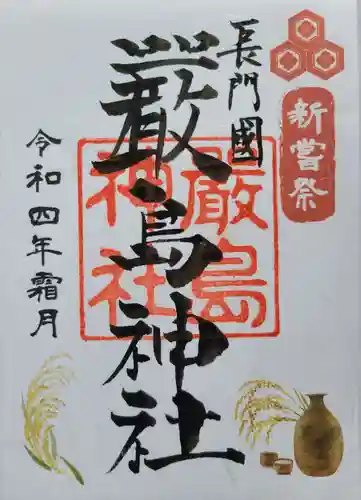 新嘗祭
長門國
嚴島神社
嚴島
神社
令和四年霜月